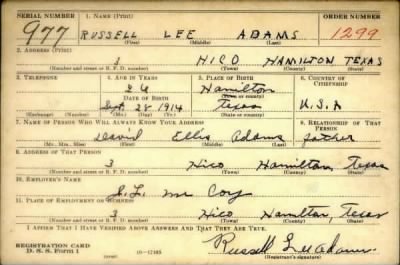 SERIAL NUMBER 1. NAME (Print) ORDER NUMBER
977 RUSSELL LEE ADAMS 1299
(First) (Middle) (Last)
2. ADDRESS (Print)
3 HICO HAMILTON TEXAS
(Number and street or R. F. D. number) (Town) (County) (State)
3. TELEPHONE 4. AGE IN YEARS 5. PLACE OF BIRTH 6. COUNTRY OF CITIZENSHIP
26 Hamilton
DATE OF BIRTH (Town or county)
Sept 28 1914 Texas U.S.A
(Exchange) (Number) (Mo.) (Day) (Yr.) (State or country)
7. NAME OF PERSON WHO WILL ALWAYS KNOW YOUR ADDRESS 8. RELATIONSHIP OF THAT PERSON
David Ellis Adams father
(Mr., Mrs., Miss) (First) (Middle) (Last)
9. ADDRESS OF THAT PERSON
3 Hico Hamilton, Texas
(Number and street or R. F. D. number) (Town) (County) (State)
10. EMPLOYER'S NAME
Mc Coy
11. PLACE OF EMPLOYMENT OR BUSINESS
3 Hico Hamilton, Texas
(Number and street or R. F. D. number) (Town) (County) (State)
I AFFIRM THAT I HAVE VERIFIED ABOVE ANSWERS AND THAT THEY ARE TRUE.
REGISTRATION CARD
D. S. S. Form 1 16—17105 Russell Lee Adams
(Registrant's signature)